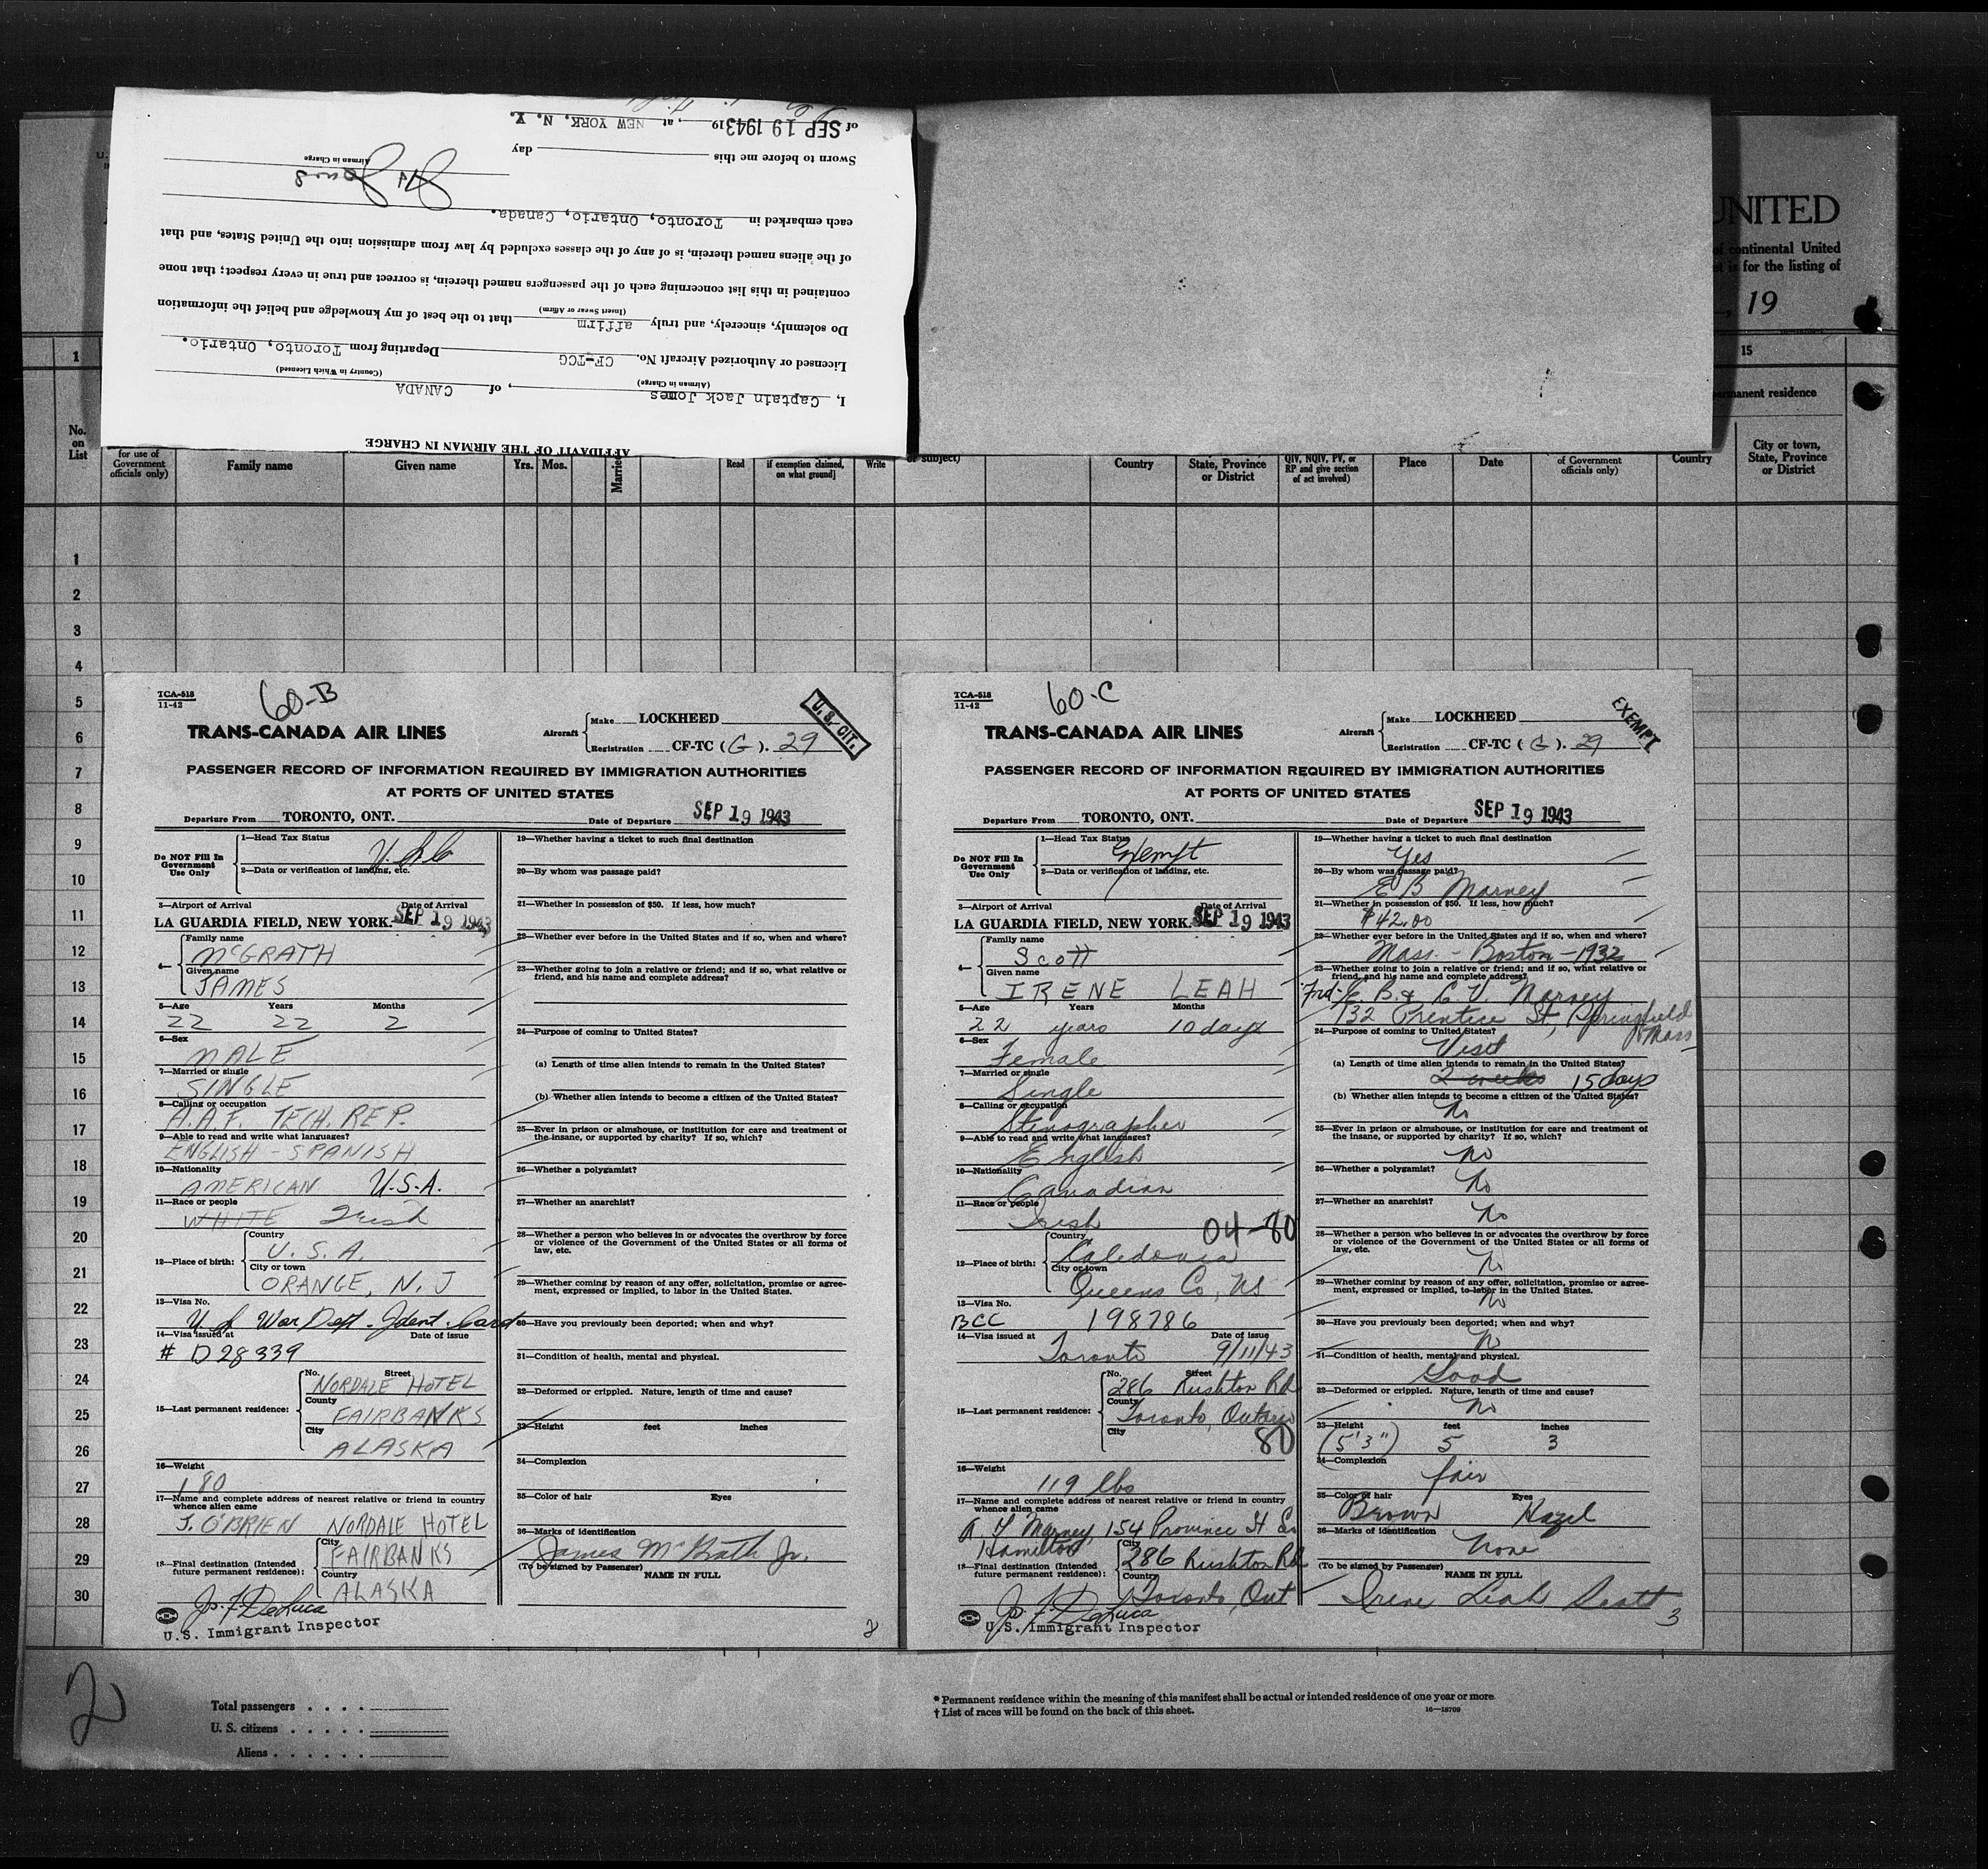 AFFIDAVIT OF THE AIRMAN IN CHARGE
I, Captain Jack Jones, of CANADA
(Airman in Charge) (Country in Which Licensed)
Licensed or Authorized Aircraft No. CF-TCG Departing from Toronto, Ontario.
Do solemnly, sincerely, and truly affirm that to the best of my knowledge and belief the information
(Insert Swear or Affirm)
contained in this list concerning each of the passengers named therein, is correct and true in every respect; that none
of the aliens named therein, is of any of the classes excluded by law from admission into the United States, and that
each embarked in Toronto, Ontario, Canada.
Jones
Airman in Charge
Sworn to before me this day
of SEP 19 1943 19 , at NEW YORK, N. Y.
UNITED
of continental United
is for the listing of
, 19
1
15
permanent residence
No.
on
List
for use of
Government
officials only)
Family name
Given name
Yrs.
Mos.
Married
Read
if exemption claimed,
on what ground]
Write
or subject)
Country
State, Province
or District
QIV, NQIV, PV, or
RP and give section
of act involved)
Place
Date
of Government
officials only)
Country
City or town,
State, Province
or District
1
2
3
4
5
6
7
8
9
10
11
12
13
14
15
16
17
18
19
20
21
22
23
24
25
26
27
28
29
30
TCA-518
11-42
60-B
U. S. CIT.
TRANS-CANADA AIR LINES
Aircraft
Make LOCKHEED
Registration CF-TC (G). 29
PASSENGER RECORD OF INFORMATION REQUIRED BY IMMIGRATION AUTHORITIES
AT PORTS OF UNITED STATES
Departure From TORONTO, ONT. Date of Departure SEP 19 1943
Do NOT Fill In
Government
Use Only
1—Head Tax Status
2—Data or verification of landing, etc.
3—Airport of Arrival Date of Arrival
LA GUARDIA FIELD, NEW YORK. SEP 19 1943
4—
Family name
McGRATH
Given name
JAMES
5—Age Years Months
22 22 2
6—Sex
MALE
7—Married or single
SINGLE
8—Calling or occupation
A.A.F. TECH. REP.
9—Able to read and write what languages?
ENGLISH - SPANISH
10—Nationality
AMERICAN U.S.A.
11—Race or people
WHITE Irish
12—Place of birth:
Country
U.S.A.
City or town
ORANGE, N.J
13—Visa No.
U S War Dept. Ident. Card
14—Visa issued at Date of issue
# D28339
15—Last permanent residence:
No. Street
NORDALE HOTEL
County
FAIRBANKS
City
ALASKA
16—Weight
180
17—Name and complete address of nearest relative or friend in country
whence alien came
J. O'BRIEN NORDALE HOTEL
18—Final destination (Intended
future permanent residence):
City
FAIRBANKS
Country
ALASKA
Jos. F. DeLuca
U.S. Immigrant Inspector
19—Whether having a ticket to such final destination
20—By whom was passage paid?
21—Whether in possession of $50. If less, how much?
22—Whether ever before in the United States and if so, when and where?
23—Whether going to join a relative or friend; and if so, what relative or
friend, and his name and complete address?
24—Purpose of coming to United States?
(a) Length of time alien intends to remain in the United States?
(b) Whether alien intends to become a citizen of the United States?
25—Ever in prison or almshouse, or institution for care and treatment of
the insane, or supported by charity? If so, which?
26—Whether a polygamist?
27—Whether an anarchist?
28—Whether a person who believes in or advocates the overthrow by force
or violence of the Government of the United States or all forms of
law, etc.
29—Whether coming by reason of any offer, solicitation, promise or agree-
ment, expressed or implied, to labor in the United States.
30—Have you previously been deported; when and why?
31—Condition of health, mental and physical.
32—Deformed or crippled. Nature, length of time and cause?
33—Height feet inches
34—Complexion
35—Color of hair Eyes
36—Marks of identification
James McGrath Jr.
(To be signed by Passenger)
NAME IN FULL
2
TCA-518
11-42
60-C
EXEMPT
TRANS-CANADA AIR LINES
Aircraft
Make LOCKHEED
Registration CF-TC (G). 29
PASSENGER RECORD OF INFORMATION REQUIRED BY IMMIGRATION AUTHORITIES
AT PORTS OF UNITED STATES
Departure From TORONTO, ONT. Date of Departure SEP 19 1943
Do NOT Fill In
Government
Use Only
1—Head Tax Status
Exempt
2—Data or verification of landing, etc.
3—Airport of Arrival Date of Arrival
LA GUARDIA FIELD, NEW YORK. SEP 19 1943
4—
Family name
Scott
Given name
IRENE LEAH
5—Age Years Months
22 years 10 days
6—Sex
Female
7—Married or single
Single
8—Calling or occupation
Stenographer
9—Able to read and write what languages?
English
10—Nationality
Canadian
11—Race or people
Irish 04-80
12—Place of birth:
Country
Caledonia
City or town
Queens Co, NS
13—Visa No.
BCC 198786
14—Visa issued at Date of issue
Toronto 9/11/43
15—Last permanent residence:
No. Street
286 Rushton Rd
County
Toronto, Ontario
City
80
16—Weight
119 lbs
17—Name and complete address of nearest relative or friend in country
whence alien came
Marney, 154 Province St
Hamilton
18—Final destination (Intended
future permanent residence):
City
286 Rushton Rd
Country
Toronto, Ont
Jos. F. DeLuca
U.S. Immigrant Inspector
19—Whether having a ticket to such final destination
Yes
20—By whom was passage paid?
E B Marney
21—Whether in possession of $50. If less, how much?
$42.00
22—Whether ever before in the United States and if so, when and where?
Mass. - Boston - 1932
23—Whether going to join a relative or friend; and if so, what relative or
friend, and his name and complete address?
Frd - E. B. & C. V. Marney
132 Prentice St, Springfield
Mass
24—Purpose of coming to United States?
Visit
(a) Length of time alien intends to remain in the United States?
2 weeks 15 days
(b) Whether alien intends to become a citizen of the United States?
No
25—Ever in prison or almshouse, or institution for care and treatment of
the insane, or supported by charity? If so, which?
No
26—Whether a polygamist?
No
27—Whether an anarchist?
No
28—Whether a person who believes in or advocates the overthrow by force
or violence of the Government of the United States or all forms of
law, etc.
No
29—Whether coming by reason of any offer, solicitation, promise or agree-
ment, expressed or implied, to labor in the United States.
No
30—Have you previously been deported; when and why?
No
31—Condition of health, mental and physical.
Good
32—Deformed or crippled. Nature, length of time and cause?
No
33—Height feet inches
(5'3") 5 3
34—Complexion
fair
35—Color of hair Eyes
Brown Hazel
36—Marks of identification
None
(To be signed by Passenger)
NAME IN FULL
Irene Leah Scott
3
2
Total passengers . . . .
U. S. citizens . . . . .
Aliens . . . . . .
* Permanent residence within the meaning of this manifest shall be actual or intended residence of one year or more.
† List of races will be found on the back of this sheet.
16—18709